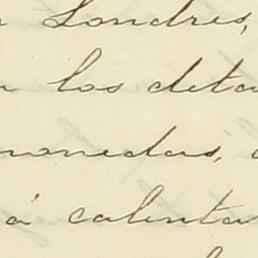 Londres,
los deta
monedas,
á calenta